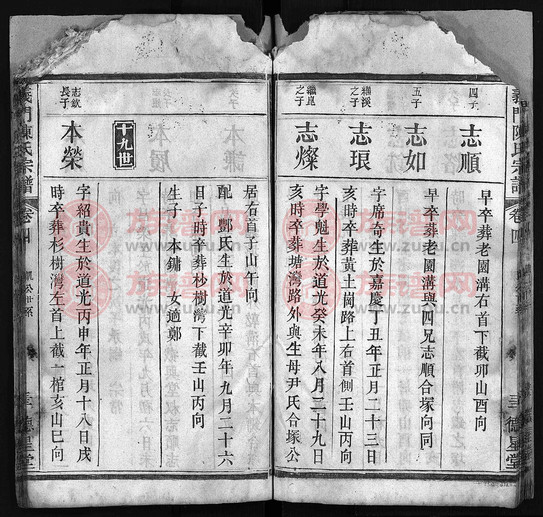 義門陳氏宗譜
卷四
德星堂
四子
志順
早卒葬老園溝右首下截卯山酉向
五子
志如
早卒葬老園溝與四兄志順合塚向同
繼溪之子
志琅
字席奇生於嘉慶丁丑年正月二十三日
時卒葬黃土岡路上右首側壬山丙向
繼崑之子
志燦
字學魁生於道光癸未年八月二十九日
亥時卒葬塘灣路外與生母尹氏合塚公
居右首子山午向
配鄧氏生於道光辛卯年九月二十六
日子時卒葬杉樹灣下截壬山丙向
生子 本鏞 女適鄭
十九世
志欽長子
本榮
字紹貴生於道光丙申年正月十八日戌
時卒葬杉樹灣左首上截一棺亥山巳向
義門陳氏宗譜
卷四
凱公世系
德星堂